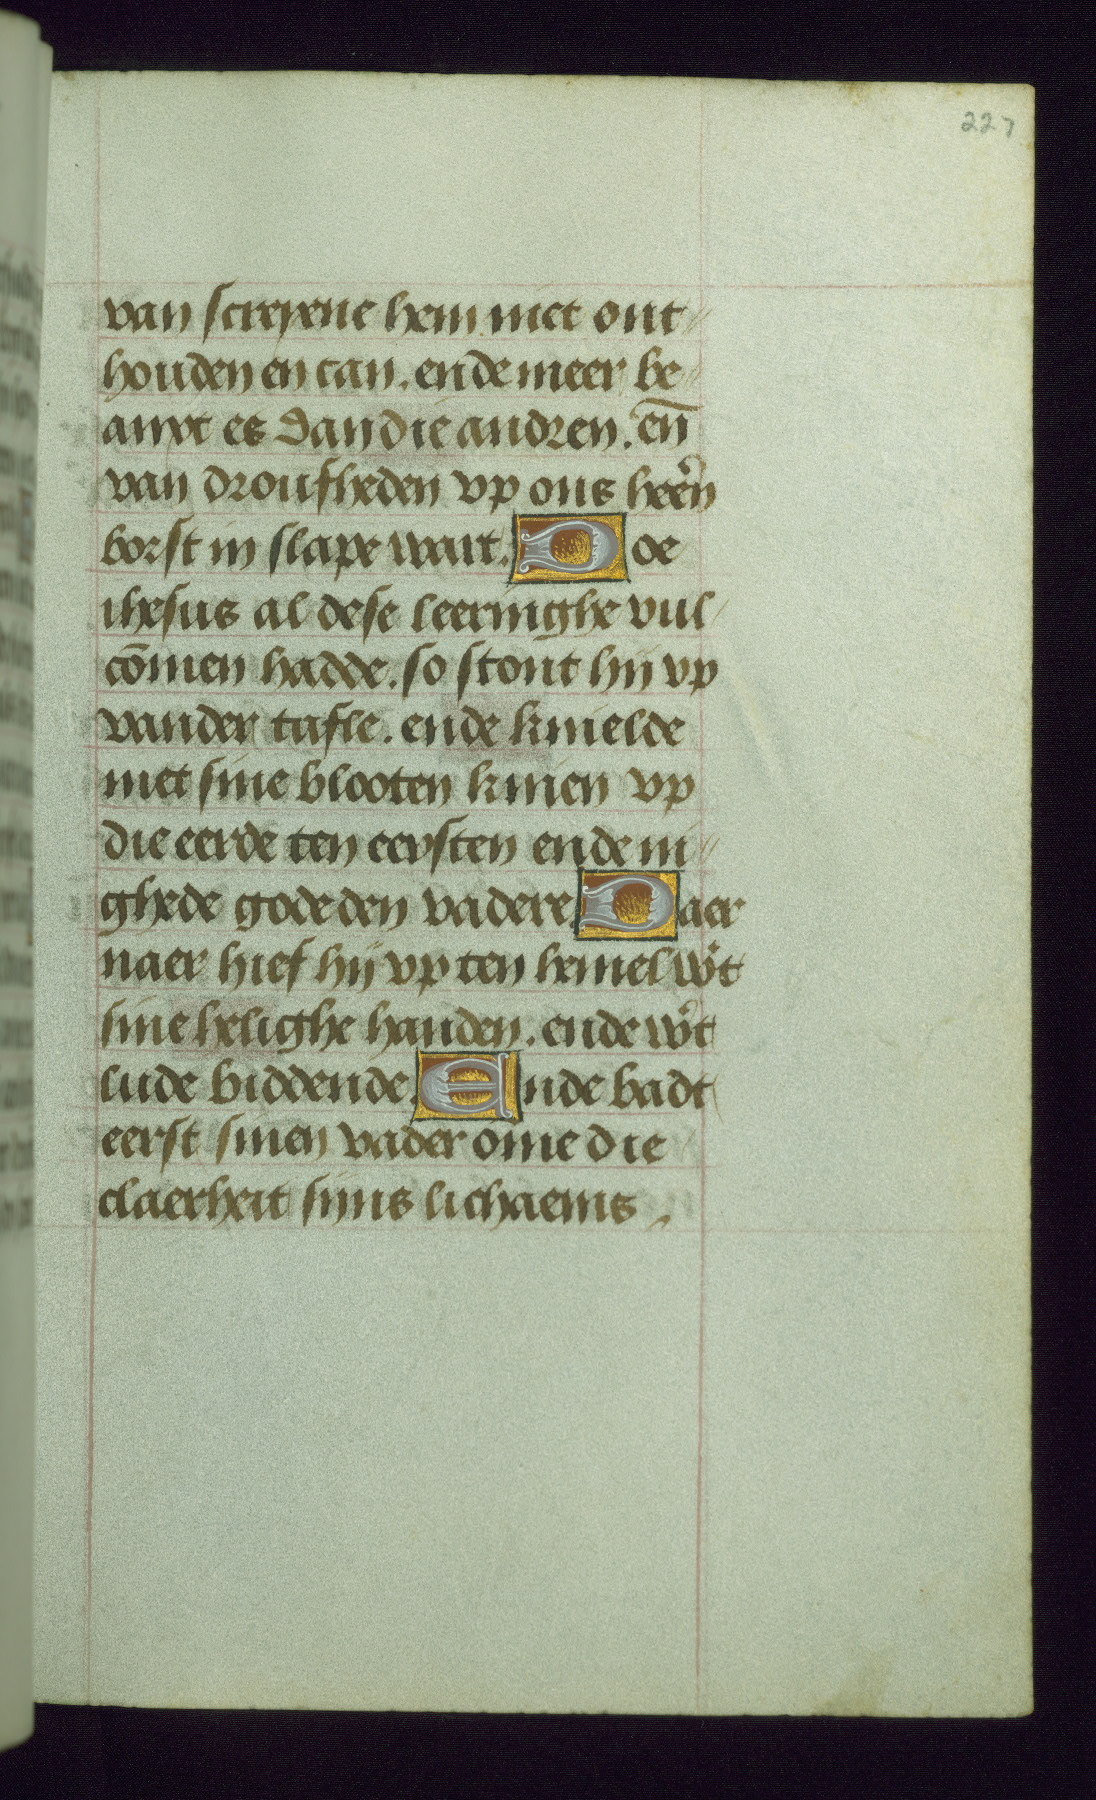 227
van screyene hem niet ont//
houden en can. ende meer be//
anxt es dan die andren. en̄
van droufheden vp ons heēn
borst in slape wart. Doe
ihesus al dese leeringhe vul/
cōmen hadde. so stont hij vp
vander tafle. ende knielde
met sine blooten knien vp
die eerde ten eersten ende ni//
ghede gode den vadere. Daer
naer hief hij vp ten hemel wͬt
sine helighe handen. ende wͬt
lude biddende. Ende badt
eerst sinen vader ome die
claerheit sijns lichaems